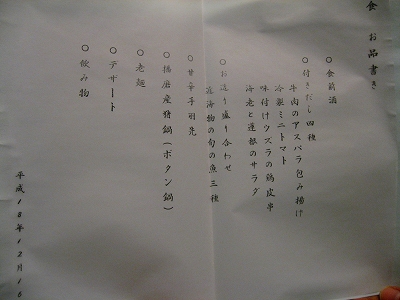 食 お品書き
○食前酒
○付きだし四種
牛肉のアスパラ包み揚げ
冷製ミニトマト
味付けウズラの鶏皮串
海老と蓮根のサラダ
○お造り盛り合わせ
海物の旬の魚三種
○甘辛手羽先
○播磨産猪鍋(ボタン鍋)
○老麺
○デザート
○飲み物
平成18年12月16